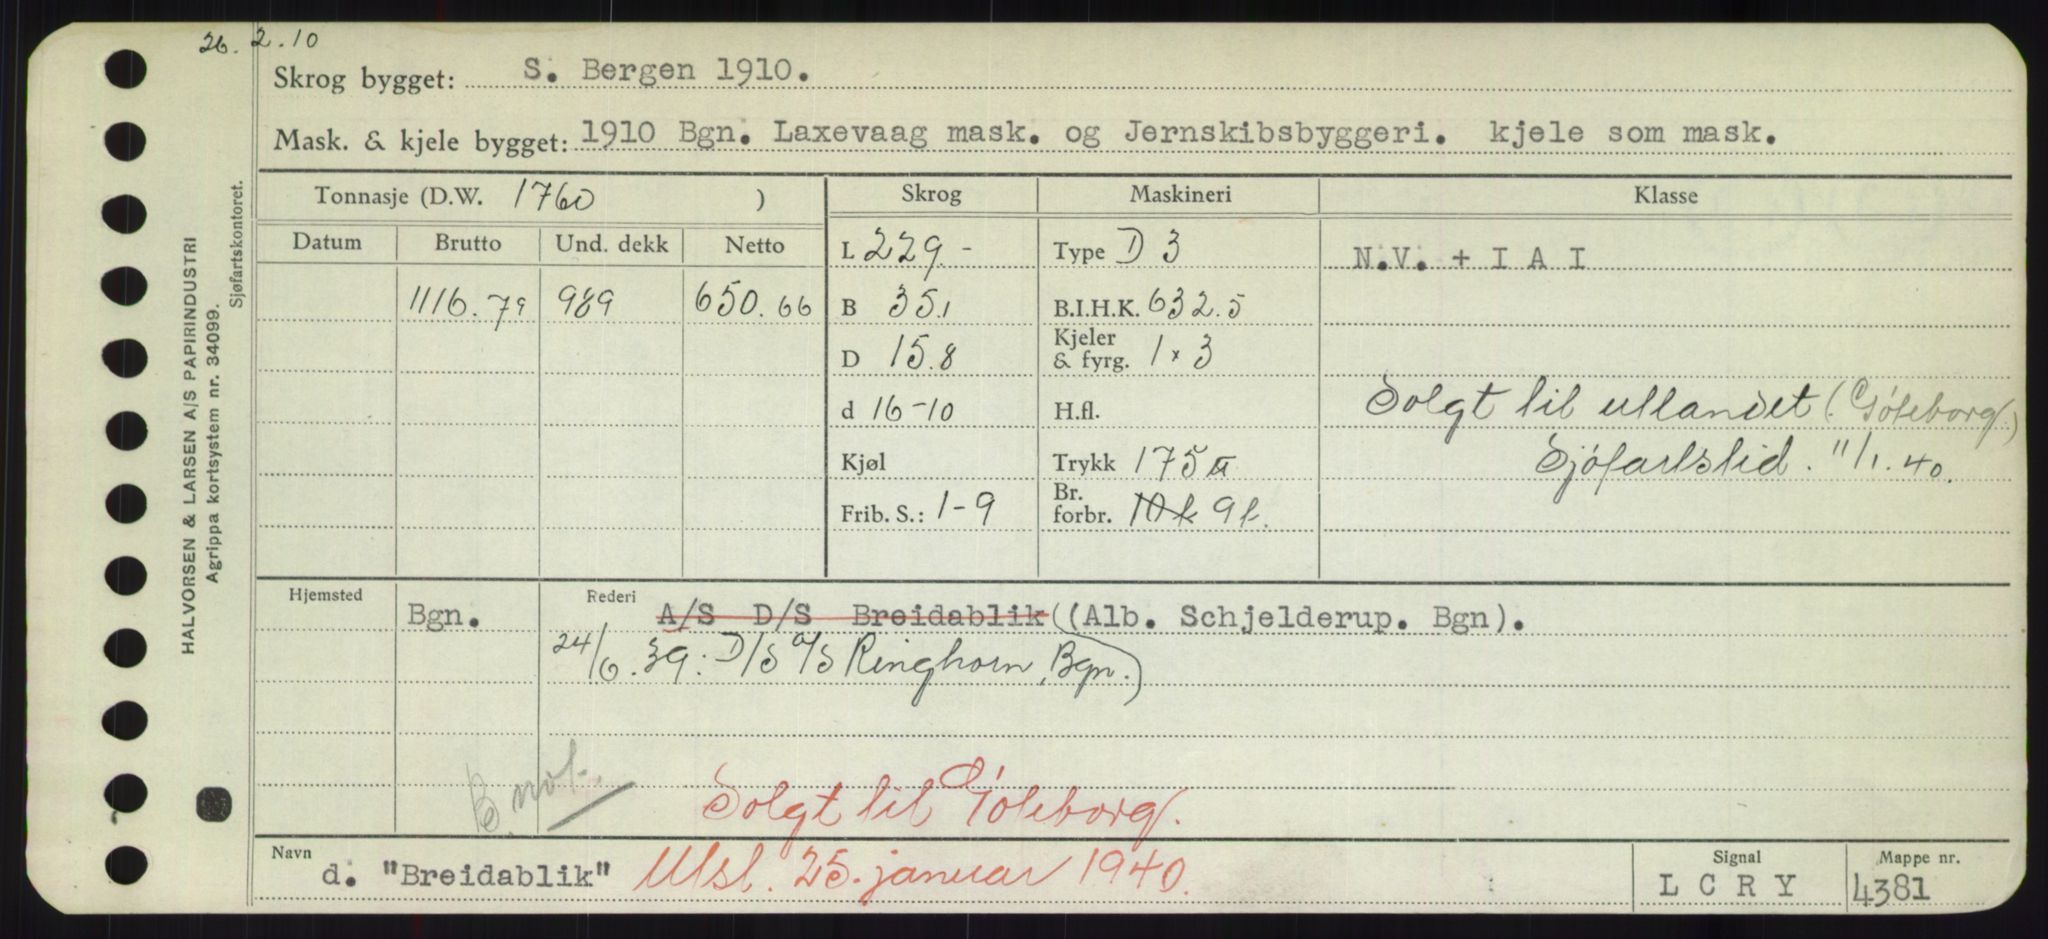 26. 2. 10
Skrog bygget: S. Bergen 1910.
Mask. & kjele bygget: 1910 Bgn. Laxevaag mask. og Jernskibsbyggeri. kjele som mask.
Tonnasje (D.W. 1760 ) Skrog Maskineri Klasse
Datum Brutto Und. dekk Netto
L 229 - Type D 3 N.V. + I A I
1116.79 989 650.66 B 35,1 B.I.H.K. 632.5
D 15.8 Kjeler & fyrg. 1 x 3
d 16-10 H.fl. Solgt til utlandet (Göteborg.)
Kjøl Trykk 175 Sjöfartstid. 11/1.40.
Frib. S.: 1-9 Br. forbr. 10 t 9 t.
Hjemsted Bgn. Rederi A/S D/S Breidablik ((Alb. Schjelderup. Bgn).
24/6.39. D/S A/S Ringhorn, Bgn.)
not.
Solgt til Göteborg.
Navn d. "Breidablik" Utsl. 25. januar 1940.
Signal L C R Y
Mappe nr. 4381
HALVORSEN & LARSEN A/S PAPIRINDUSTRI
Agrippa kortsystem nr. 34099.
Sjøfartskontoret.